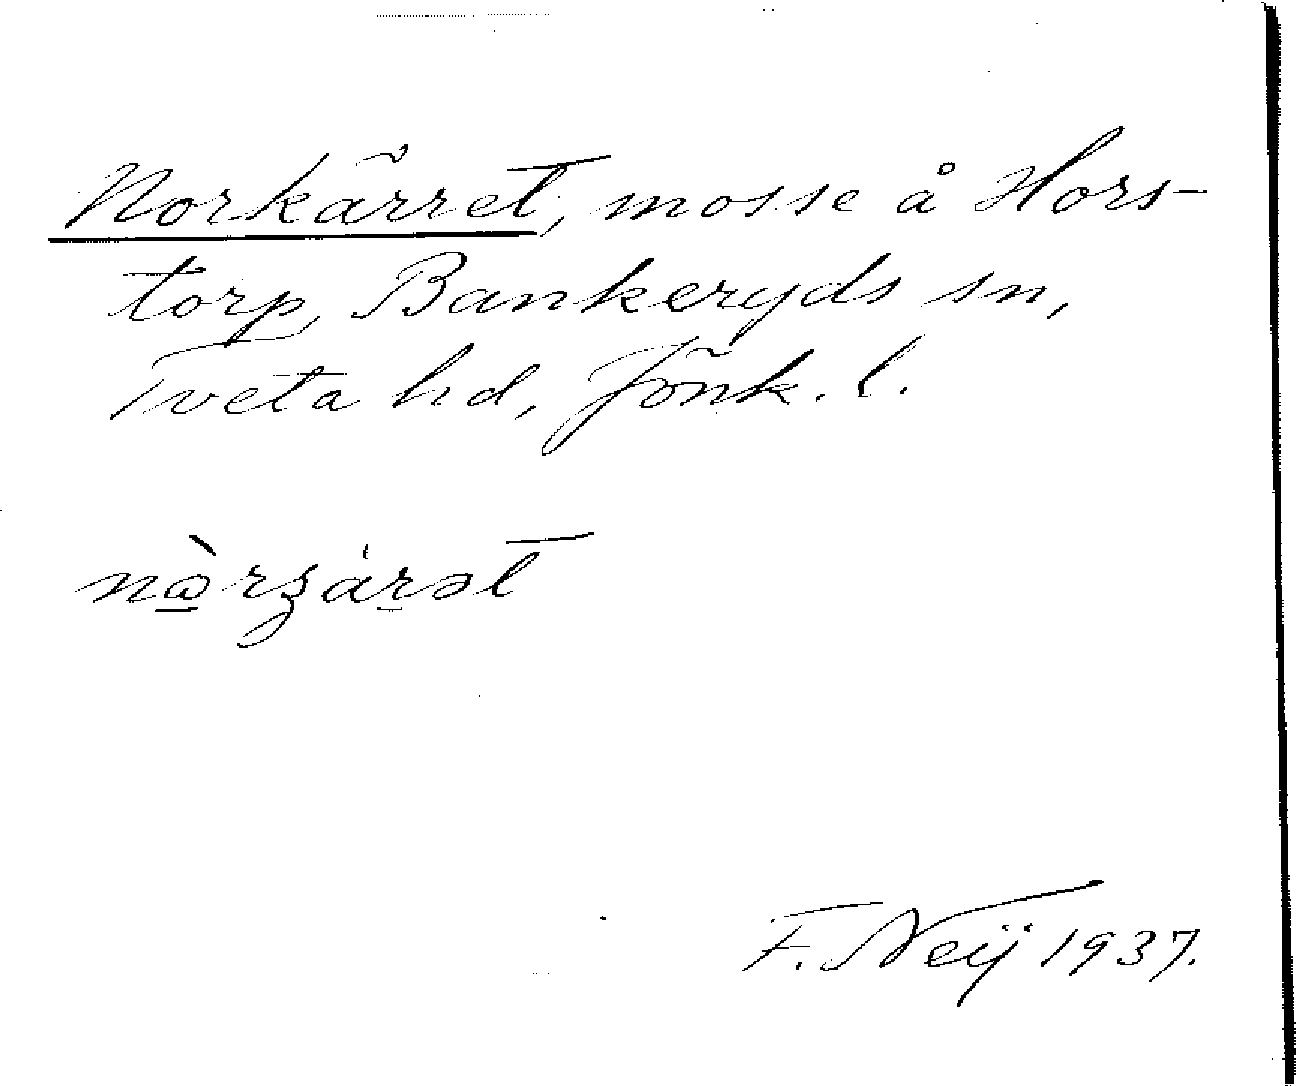 Norkärret, mosse å Hors-
torp, Bankeryds sn,
Tveta hd, Jönk. l.
F. Neij 1937.